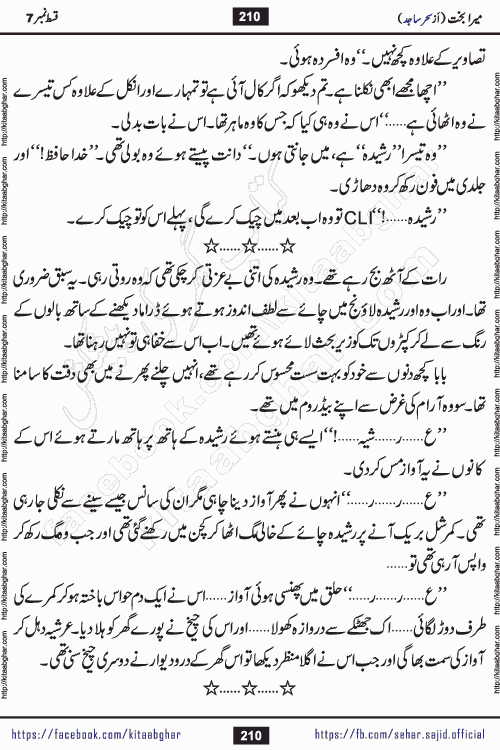 میرا بخت (از سحر ساجد)
210
قسط نمبر 7
تصاویر کے علاوہ کچھ نہیں۔‘‘ وہ افسردہ ہوئی۔
’’اچھا مجھے ابھی نکلنا ہے۔ تم دیکھو کہ اگر کال آئی ہے تو تمہارے اور انکل کے علاوہ کس تیسرے
نے وہ اٹھائی ہے……‘‘ اس نے وہی کیا کہ جس کا وہ ماہر تھا۔ اس نے بات بدلی۔
’’وہ تیسرا ’’رشیدہ‘‘ ہے، میں جانتی ہوں۔‘‘ دانت پیستے ہوئے وہ بولی تھی۔ ’’خدا حافظ!‘‘ اور
جلدی میں فون رکھ کر وہ دھاڑی۔
’’رشیدہ……!‘‘ CLI تو وہ اب بعد میں چیک کرے گی، پہلے اس کو تو چیک کرے۔
☆……☆……☆
رات کے آٹھ بج رہے تھے۔ وہ رشیدہ کی اتنی بے عزتی کر چکی تھی کہ وہ روتی رہی۔ یہ سبق ضروری
تھا۔ اور اب وہ اور رشیدہ لاؤنج میں چائے سے لطف اندوز ہوتے ہوئے ڈراما دیکھنے کے ساتھ بالوں کے
رنگ سے لے کر کپڑوں تک کو زیر بحث لائے ہوئے تھیں۔ اب اس سے خفا ہی تو نہیں رہنا تھا۔
بابا کچھ دنوں سے خود کو بہت سست محسوس کر رہے تھے، انہیں چلنے پھرنے میں بھی دقت کا سامنا
تھا۔ سو وہ آرام کی غرض سے اپنے بیڈ روم میں تھے۔
’’ع……ر……شیہ……!‘‘ ایسے ہی ہنستے ہوئے رشیدہ کے ہاتھ پر ہاتھ مارتے ہوئے اس کے
کانوں نے یہ آواز مس کر دی۔
’’ع……ر……ر……‘‘ انہوں نے پھر آواز دینا چاہی مگر ان کی سانس جیسے سینے سے نکلی جا رہی
تھی۔ کمرشل بریک آنے پر رشیدہ چائے کے خالی مگ اٹھا کر کچن میں رکھنے گئی تھی اور جب وہ مگ رکھ کر
واپس آ رہی تھی تو……
’’ع……ر……ر……‘‘ حلق میں پھنسی ہوئی آواز……اس نے ایک دم حواس باختہ ہو کر کمرے کی
طرف دوڑ لگائی……اک جھٹکے سے دروازہ کھولا……اور اس کی چیخ نے پورے گھر کو ہلا دیا۔ عرشیہ دہل کر
آواز کی سمت بھاگی اور جب اس نے اگلا منظر دیکھا تو اس گھر کے درودیوار نے دوسری چیخ سنی تھی۔
☆……☆……☆
https://facebook.com/kitaabghar
210
https://fb.com/sehar.sajid.official
http://kitaabghar.com